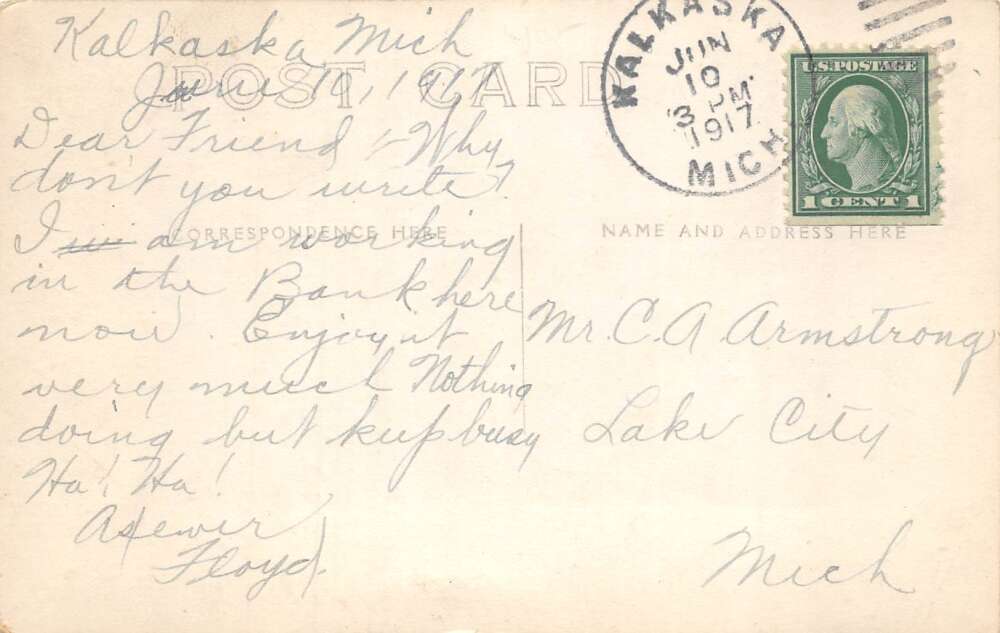 Kalkaska Mich
June 10, 1917
POST CARD
Dear Friend :- Why
don't you write?
I am working
in the Bank here
now. Enjoy it
very much Nothing
doing but keep busy
Ha! Ha!
As ever
Floyd.
CORRESPONDENCE HERE
NAME AND ADDRESS HERE
KALKASKA
JUN
10
3 PM
1917
MICH.
U.S. POSTAGE
1 CENT 1
Mr. C. A. Armstrong
Lake City
Mich